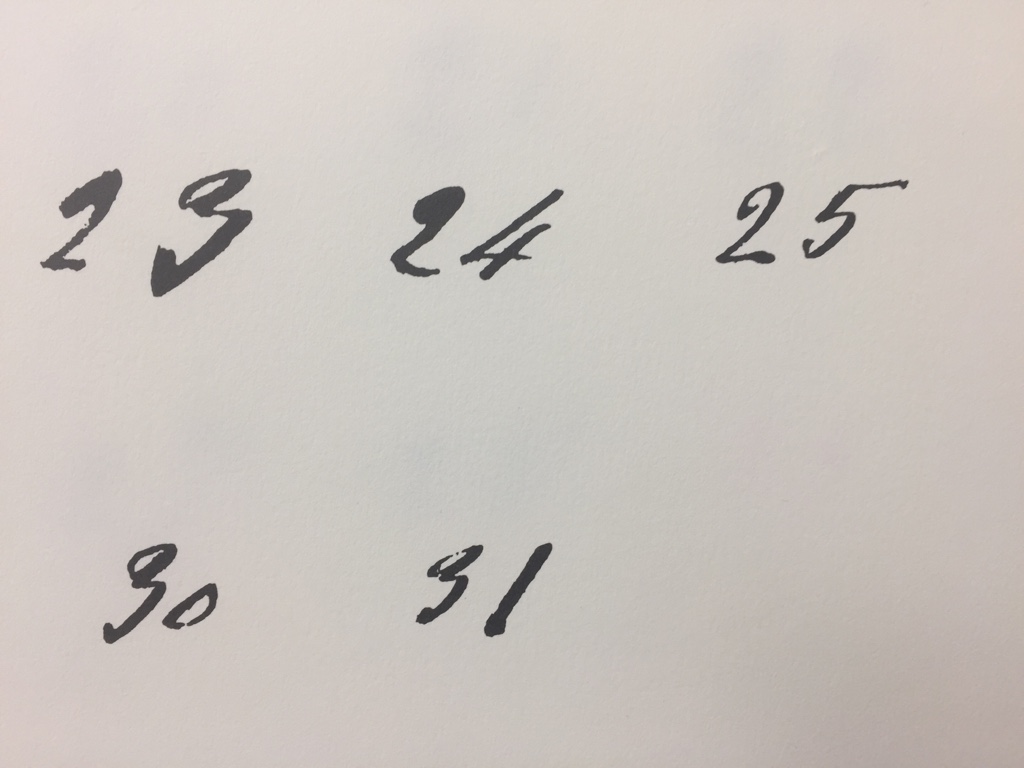 23 24 25
30 31